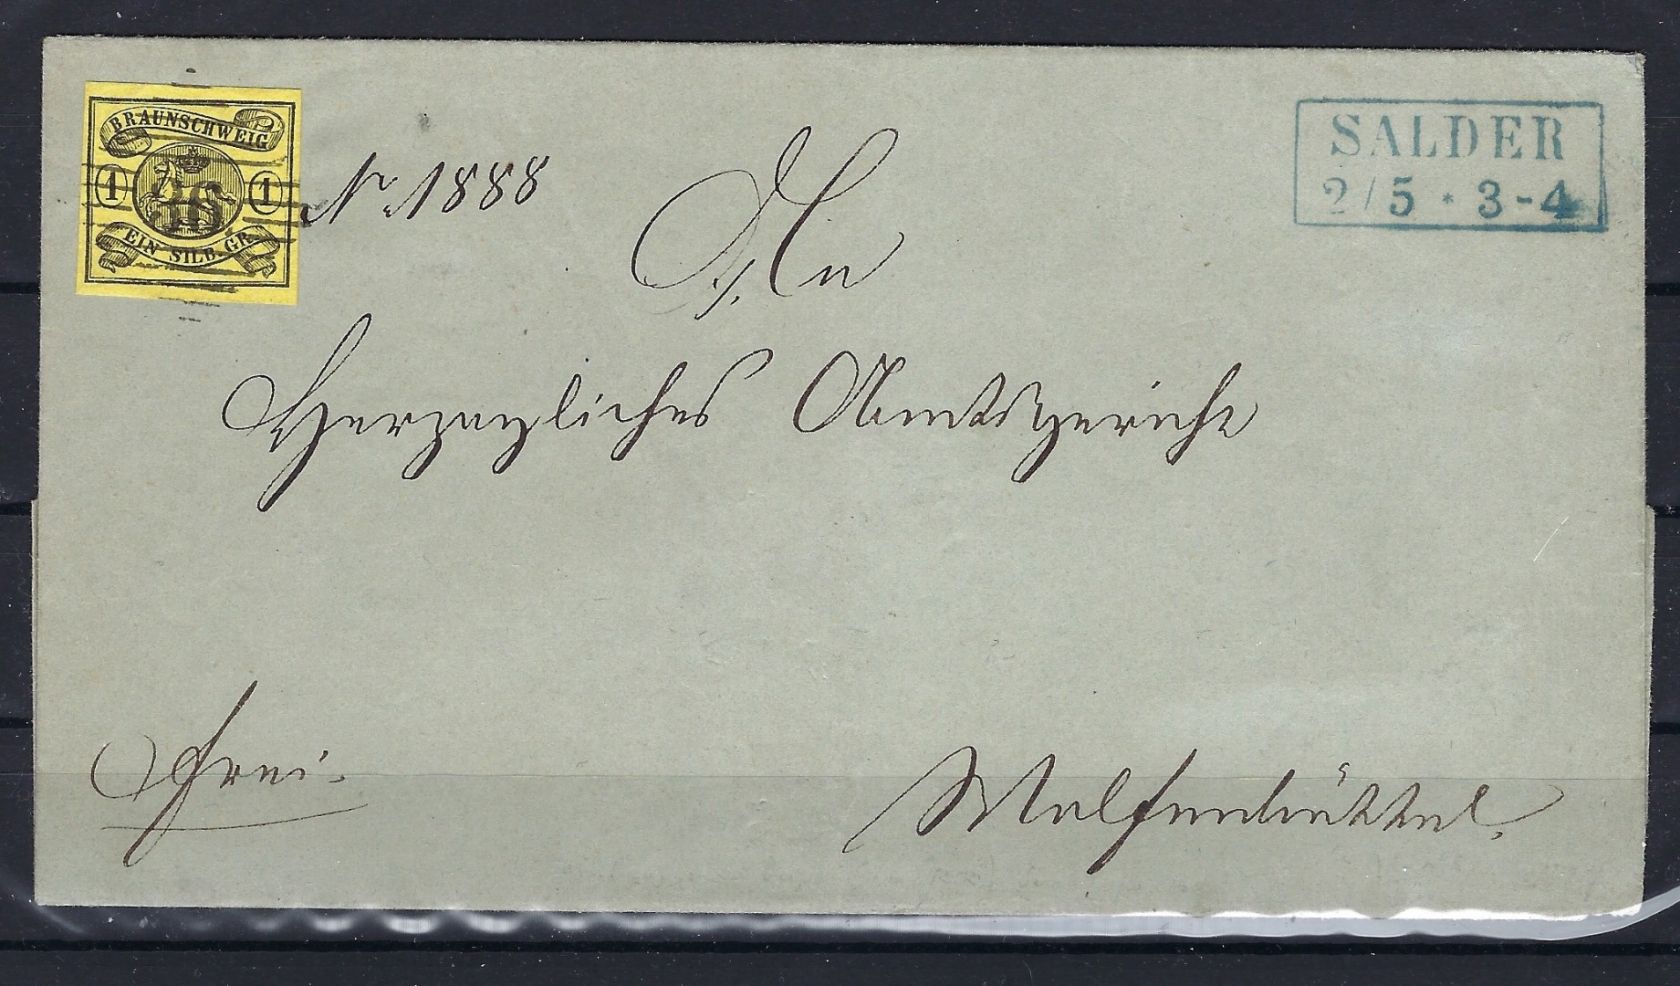 BRAUNSCHWEIG
1 1
EIN SILB.GR.
No 1888
SALDER
2/5 * 3-4
An
Herzogliches Amtsgericht
frei.
Wolfenbüttel.